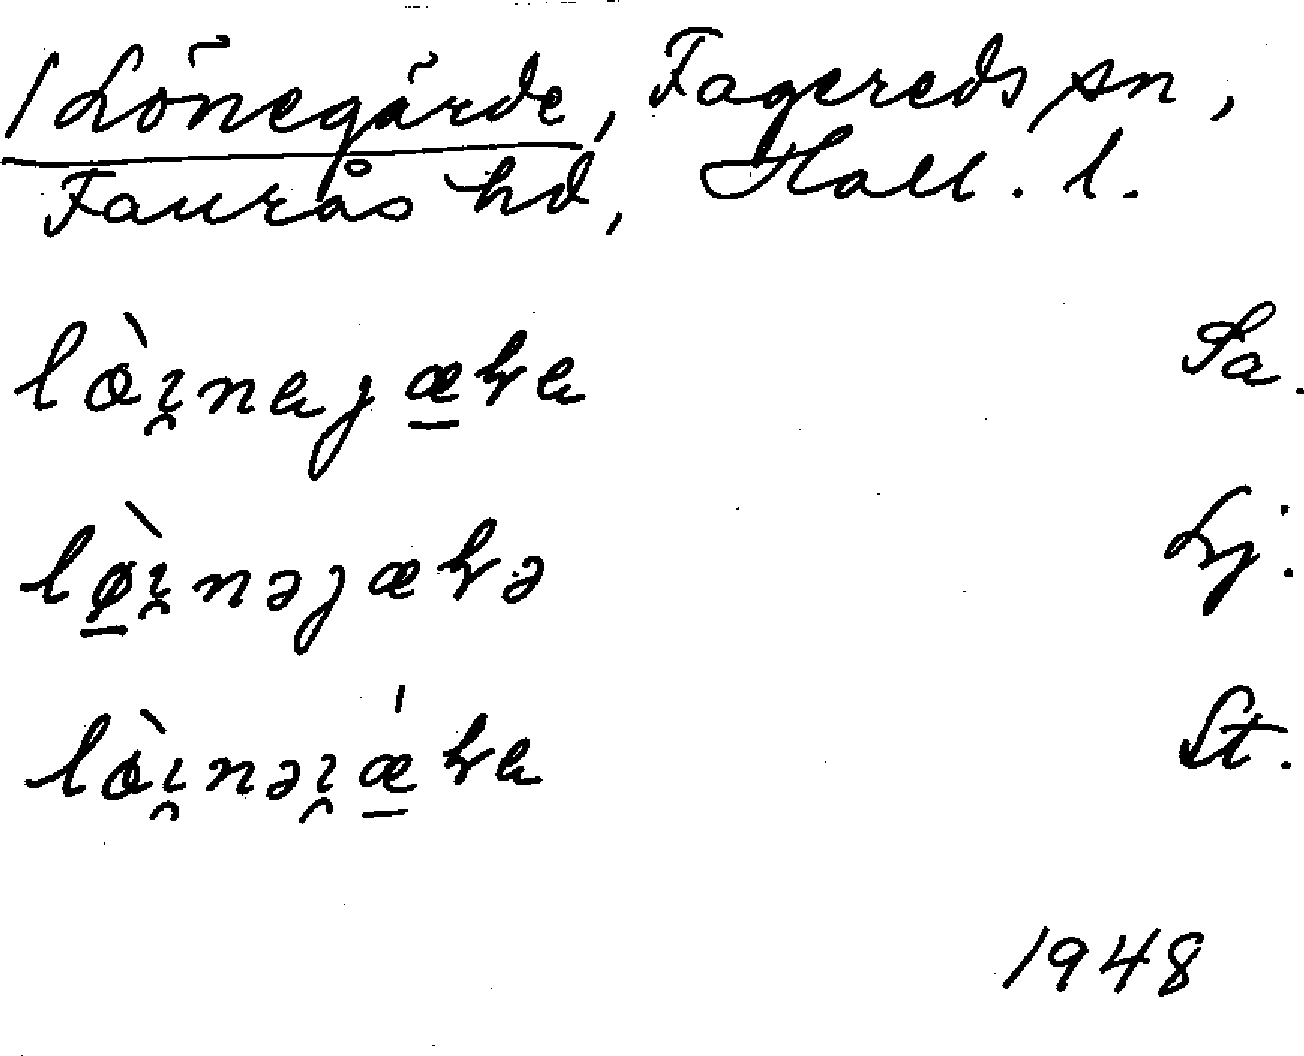 1 Lönegärde, Fagereds sn,
Faurås hd, Hall. l.
lò̤ı̯nɐȷæ̲ʀɐ Sa.
lø̲̀ı̯nəȷæʀə Lj.
lòı̯nəı̯ǽ̲ʀɐ St.
1948